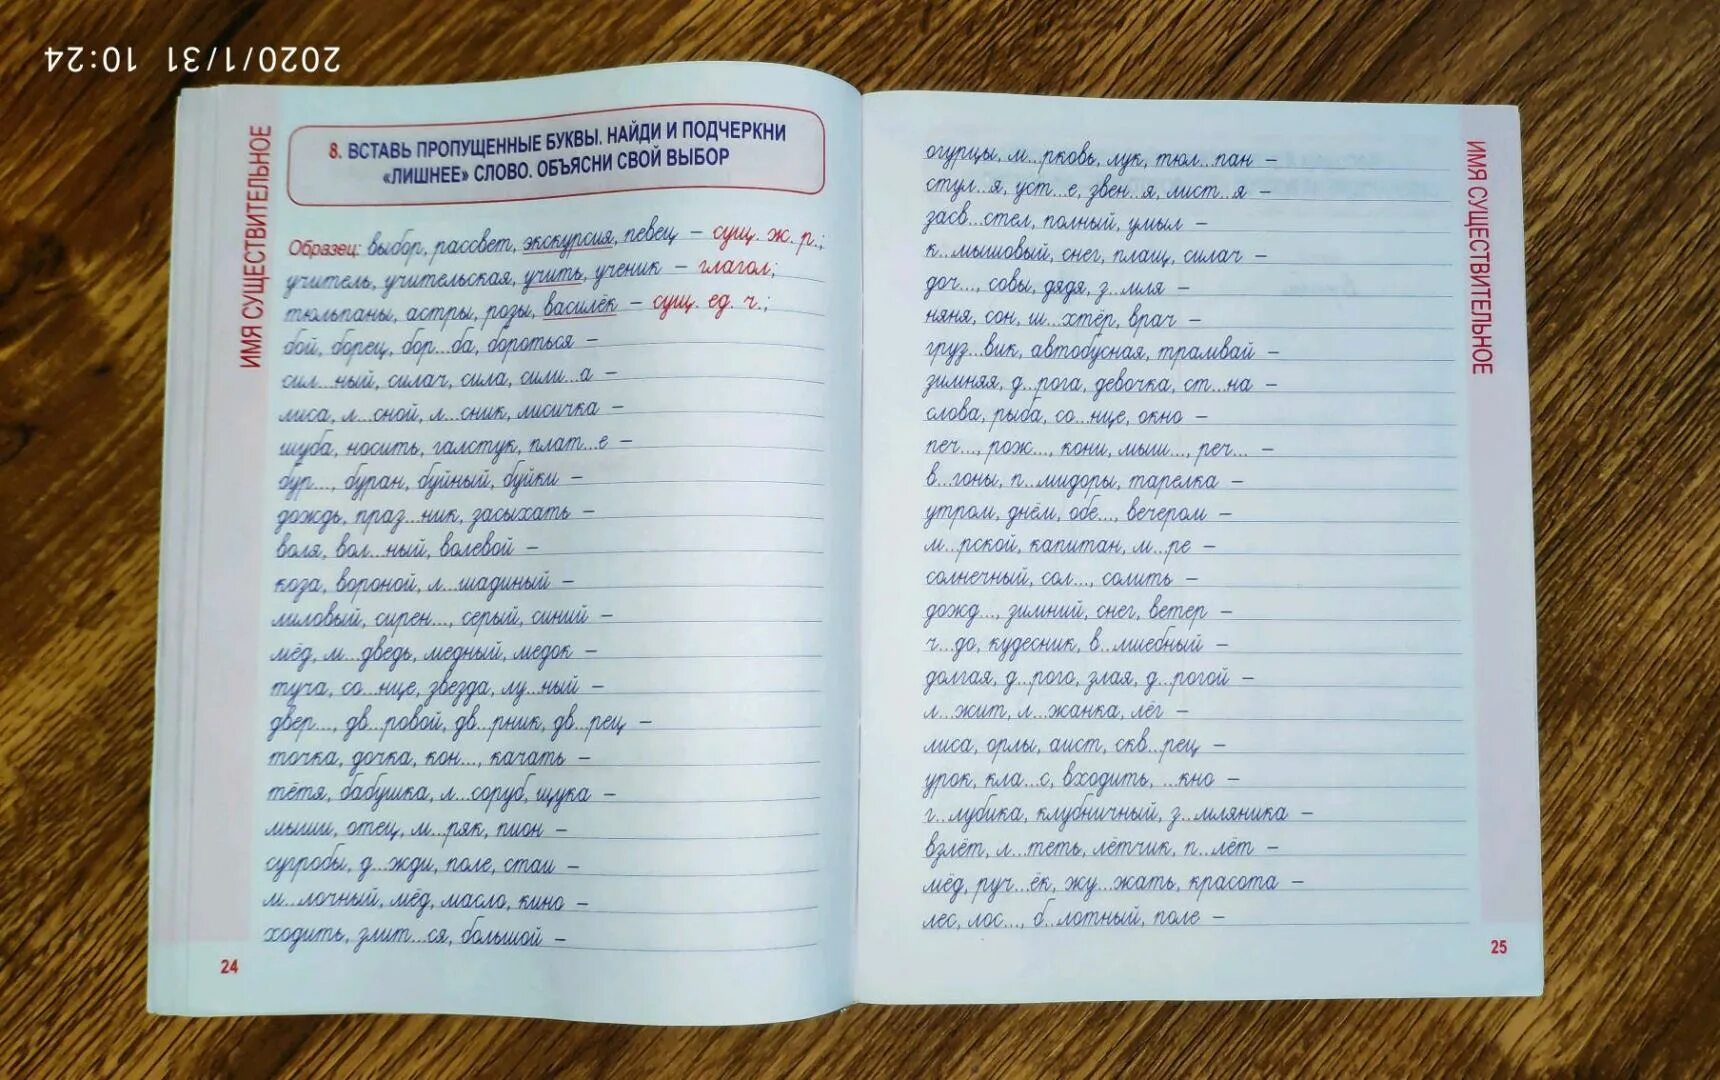 2020/1/31 10:24
ИМЯ СУЩЕСТВИТЕЛЬНОЕ
8. ВСТАВЬ ПРОПУЩЕННЫЕ БУКВЫ. НАЙДИ И ПОДЧЕРКНИ
«ЛИШНЕЕ» СЛОВО. ОБЪЯСНИ СВОЙ ВЫБОР
Образец: выбор, рассвет, экскурсия, певец – сущ. ж. р.;
учитель, учительская, учить, ученик – глагол;
тюльпаны, астры, розы, василёк – сущ. ед. ч.;
бой, борец, бор...ба, бороться –
сил...ный, силач, сила, сили...а –
лиса, л...сной, л...сник, лисичка –
шуба, носить, галстук, плат...е –
бур..., буран, буйный, буйки –
дождь, праз...ник, засыхать –
воля, вол...ный, волевой –
коза, вороной, л...шадиный –
лиловый, сирен..., серый, синий –
мёд, м...дведь, медный, медок –
туча, со...нце, звезда, лу...ный –
двер..., дв...ровой, дв...рник, дв...рец –
точка, дочка, кон..., качать –
тётя, бабушка, л...соруб, щука –
мыши, отец, м...ряк, пион –
сугробы, д...жди, поле, стаи –
м...лочный, мёд, масло, кино –
ходить, злит...ся, большой –
24
огурцы, м...рковь, лук, тюл...пан –
стул...я, уст...е, звен...я, лист...я –
засв...стел, полный, умыл –
к...мышовый, снег, плащ, силач –
доч..., совы, дядя, з...мля –
няня, сон, ш...хтёр, врач –
груз...вик, автобусная, трамвай –
зимняя, д...рога, девочка, ст...на –
слова, рыба, со...нце, окно –
печ..., рож..., кони, мыш..., реч... –
в...гоны, п...мидоры, тарелка –
утром, днём, обе..., вечером –
м...рской, капитан, м...ре –
солнечный, сол..., солить –
дожд..., зимний, снег, ветер –
ч...до, кудесник, в...лшебный –
долгая, д...рого, злая, д...рогой –
л...жит, л...жанка, лёг –
лиса, орлы, аист, скв...рец –
урок, кла...с, входить, ...кно –
г...лубика, клубничный, з...мляника –
взлёт, л...теть, лётчик, п...лёт –
мёд, руч...ёк, жу...жать, красота –
лес, лос..., б...лотный, поле –
ИМЯ СУЩЕСТВИТЕЛЬНОЕ
25